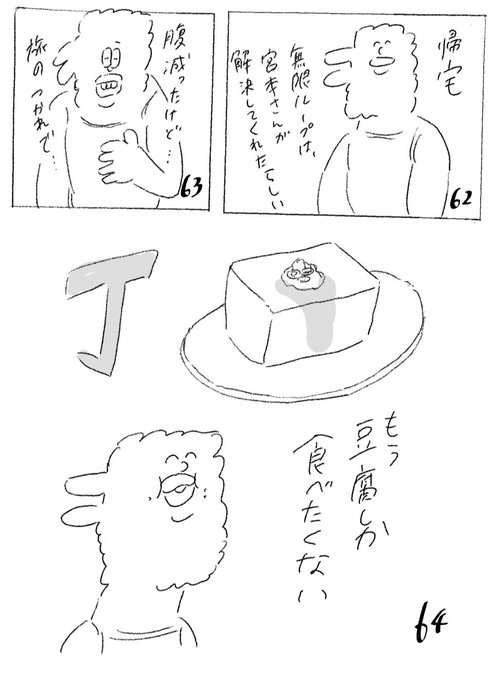 帰宅
無限ループは、
宮本さんが
解決してくれたらしい
62
腹減ったけど…
旅のつかれで…
63
丁
もう
豆腐しか
食べたくない
64